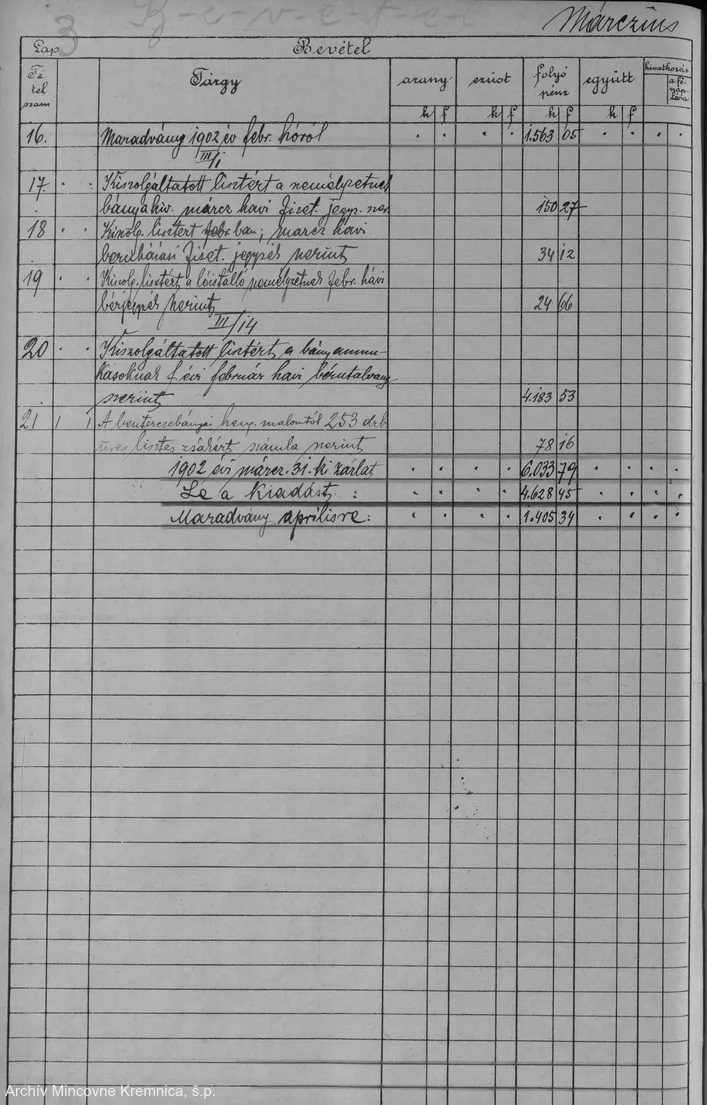 3 B-e-v-é-t-e-l
Márczius
Lap. Bevétel
Tétel szám Tárgy arany ezüst folyó pénz együtt hivatkozás a főnaplóra
k f k f k f k f
16. Maradvány 1902 év febr. hóról 1.563 05
III/1
17. Kiszolgáltatott lisztért a személyzetnek
bányahiv. márcz havi fizet. jegyz. szer. 150 27
18 Kiszolg. lisztért febr ban; márcz havi
beruházási fizet. jegyzék szerint 34 12
19 Kiszolg. lisztért a lóistálló személyzetnek febr. havi
bérjegyzék szerint 24 66
III/14
20 Kiszolgáltatott lisztért a bányamun-
kásoknak f. évi február havi bérutalvány
szerint 4.183 53
21 1 1 A beszterczebányai heng. malomtól 253 drb
üres lisztes zsákért számla szerint 78 16
1902 évi márcz. 31. ki zárlat 6.033 79
Le a Kiadást: 4.628 45
Maradvány áprilisre: 1.405 34
Archív Mincovne Kremnica, š.p.